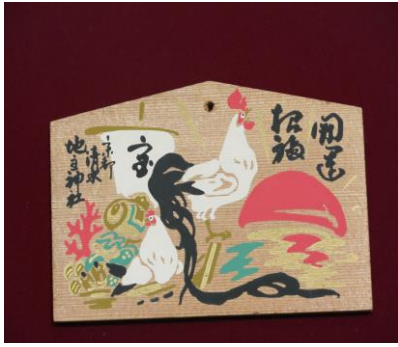 開運
招福
宝
京都
清水
地主神社